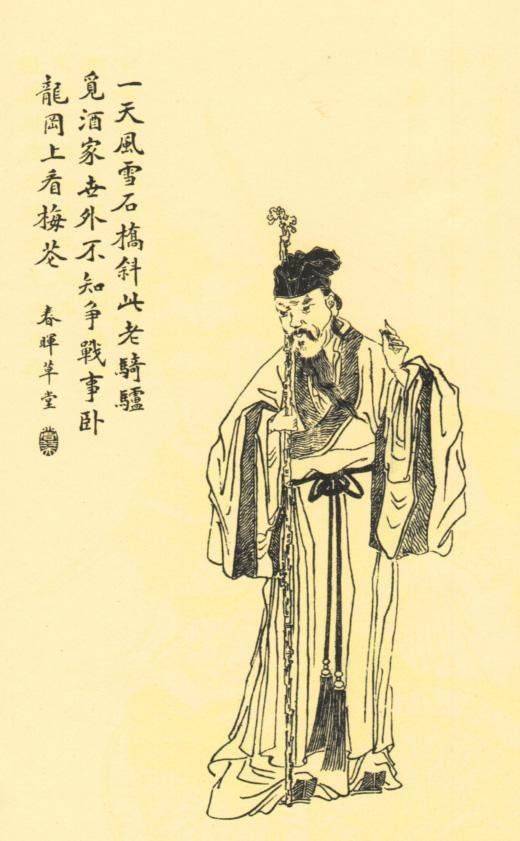 一天風雪石橋斜此老騎驢
覓酒家世外不知爭戰事卧
龍岡上看梅花
春暉草堂